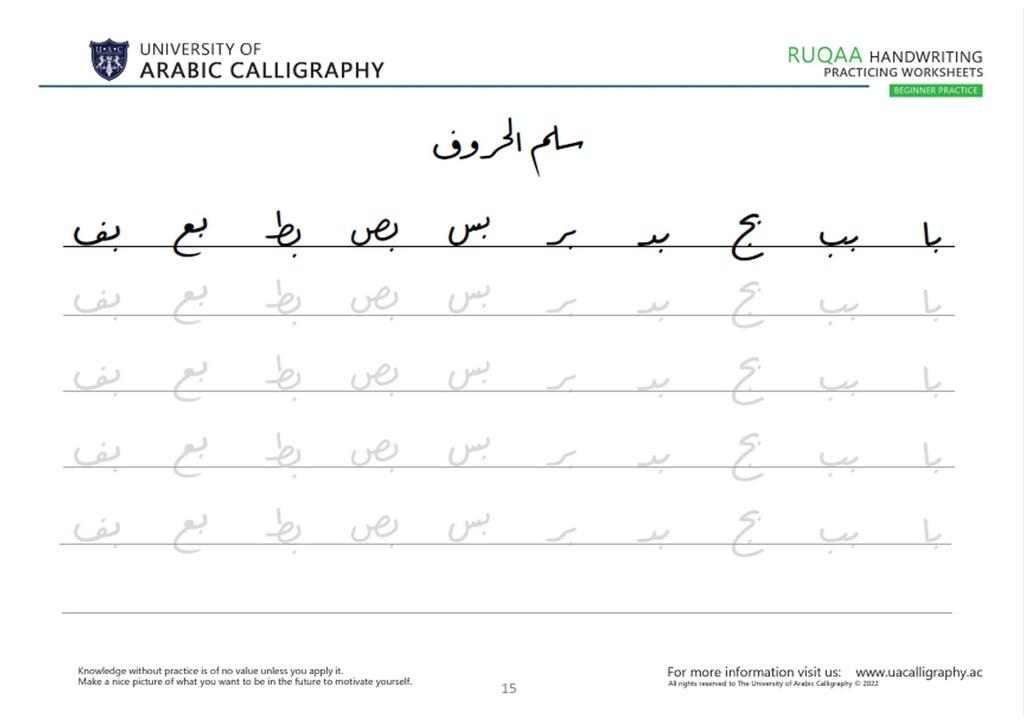 UNIVERSITY OF
ARABIC CALLIGRAPHY
RUQAA HANDWRITING
PRACTICING WORKSHEETS
BEGINNER PRACTICE
سلم الحروف
با بب بج بد بر بس بص بط بع بف
با بب بج بد بر بس بص بط بع بف
با بب بج بد بر بس بص بط بع بف
با بب بج بد بر بس بص بط بع بف
با بب بج بد بر بس بص بط بع بف
Knowledge without practice is of no value unless you apply it.
Make a nice picture of what you want to be in the future to motivate yourself.
15
For more information visit us: www.uacalligraphy.ac
All rights reserved to The University of Arabic Calligraphy © 2022